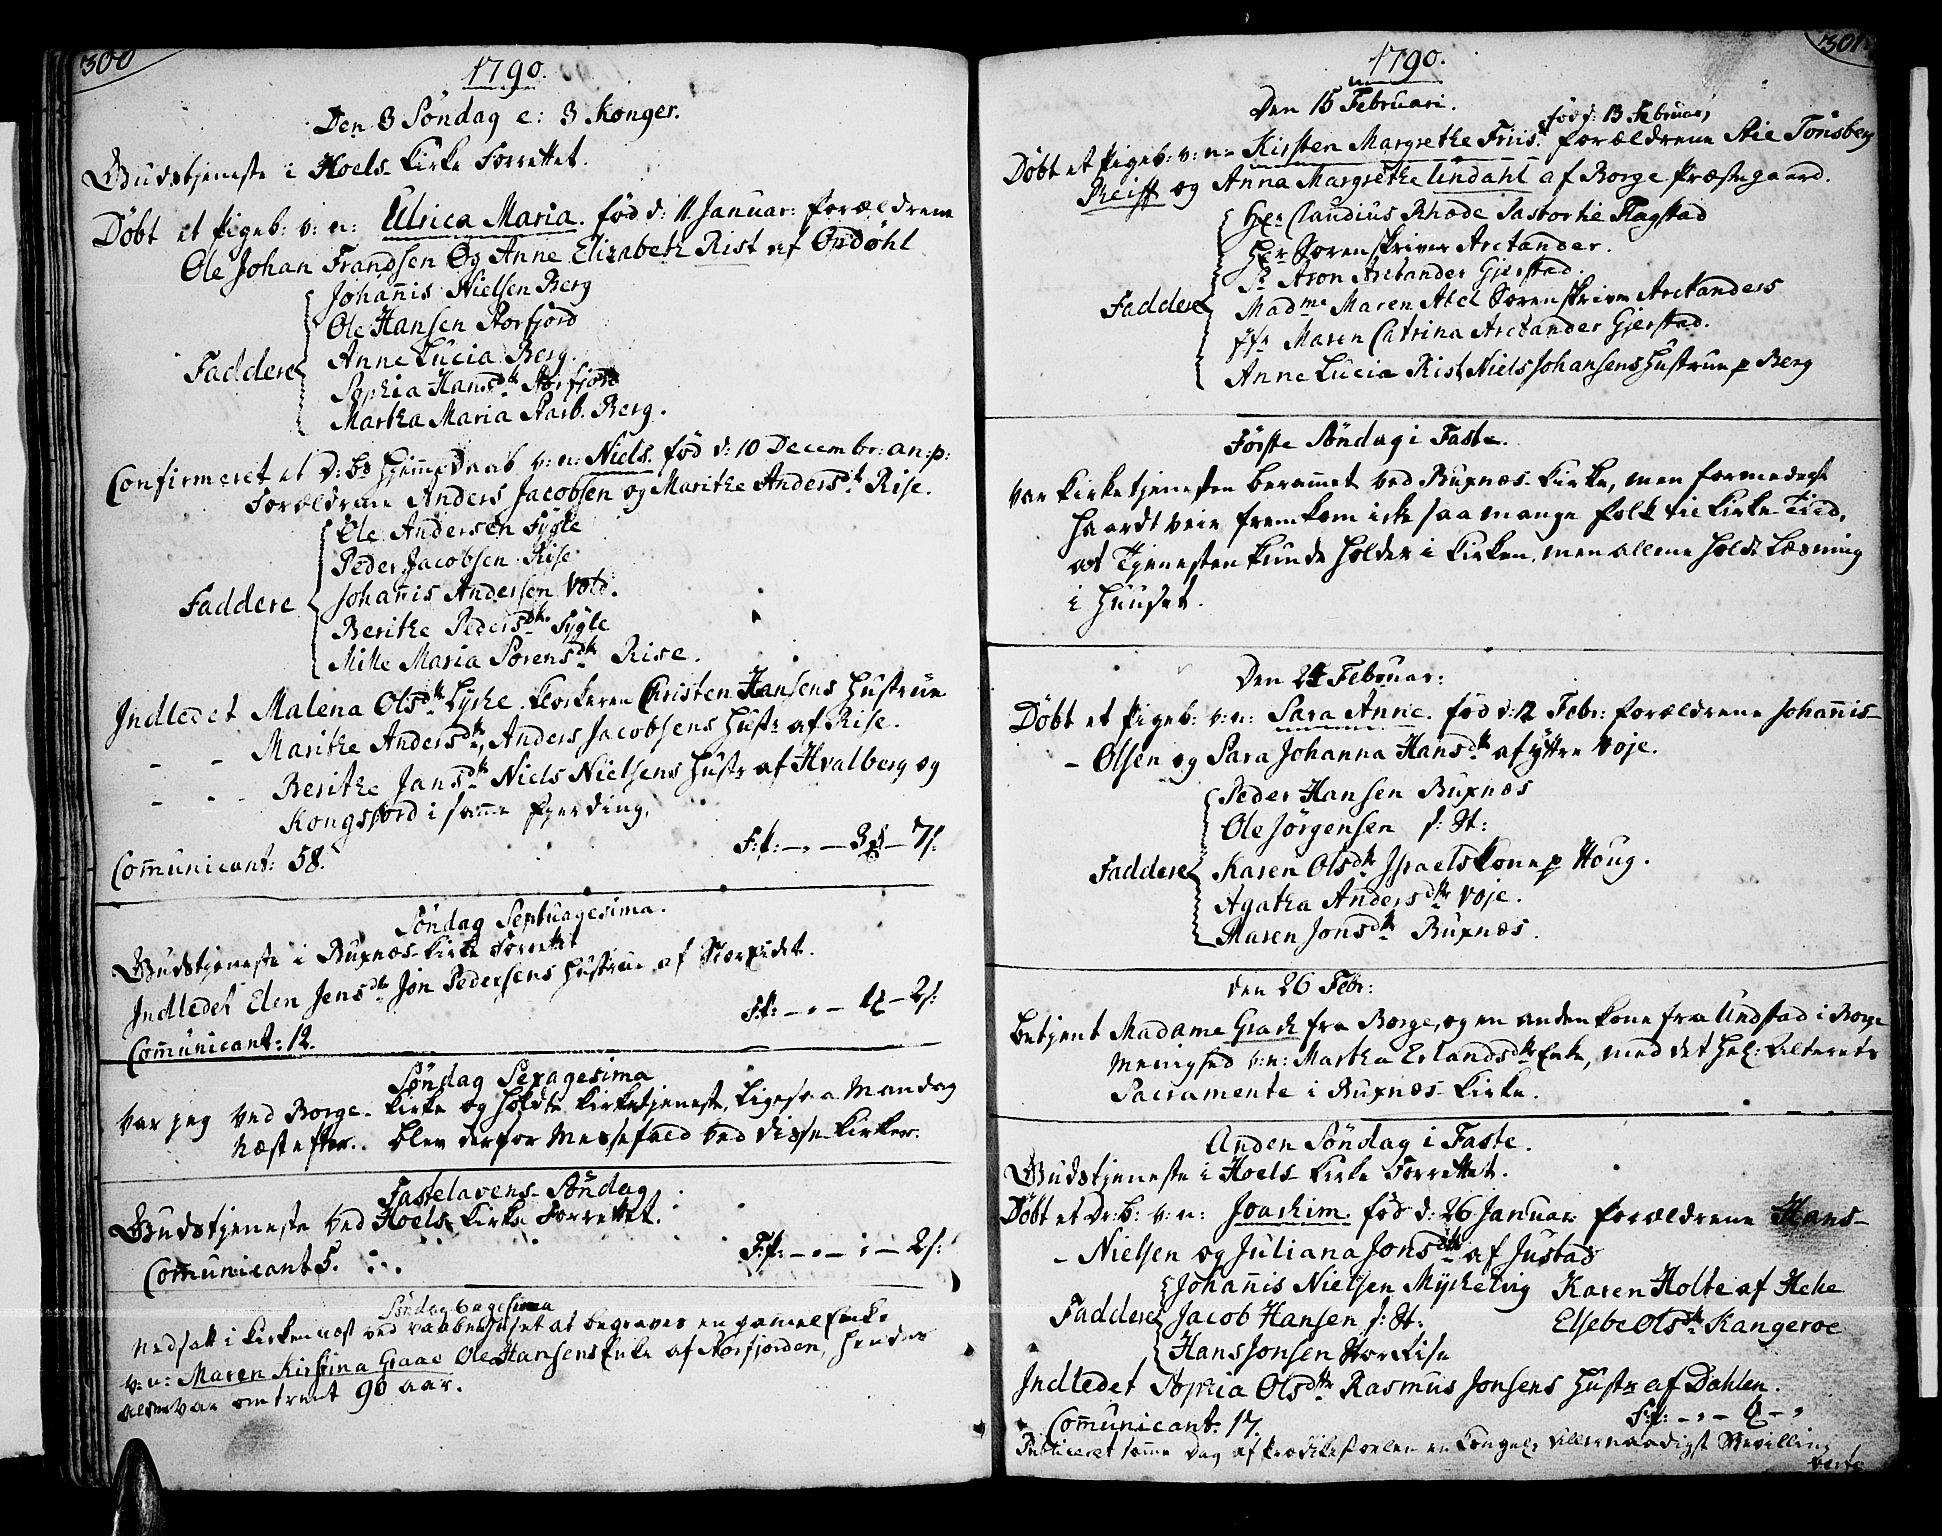 300
1790.
Den 3 Söndag e: 3 Konger.
Gudstjeneste i Hoels-Kirke Forrettet.
Döbt et Pigeb: v: n: Ulrica Maria. fød d: 11 Januar: Forældrene
Ole Johan Frandsen Og Anne Elizabeth Rist af Opdöhl
Johannis Nielsen Berg
Ole Hansen Storfjord
Faddere Anne Lucia Berg.
Sophia Hansdtr Storfjord
Martha Maria Berg.
Confirmeret et D:bs hjemme Daab v: n: Niels. fød d: 10 Decembr: an: p:
Forældrene Anders Jacobsen og Marithe Andersdtr Rise.
Ole Andersen Sygle
Peder Jacobsen Rise
Faddere Johannis Andersen Vold.
Berithe Pedersdtr Sygle
Mille Maria Sörensdtr Rise.
Indledet Malena Olsdtr Lyche. Klockeren Christen Hansens Hustrue
- - Marithe Andersdtr, Anders Jacobsens Hustr af Rise.
- - Berithe Jansdtr Niels Nielsens Hustr af Hvalberg og
Kongsjord i samme fjerding.
F:f: - , - 3 - 7 s:
Communicant: 58.
Söndag Septuagesima.
Gudstjeneste i Buxnæs-Kirke Forrettet
Indledet Elen Jensdtr Jon Pedersens Hustrue af Storeidet.
F:f: - , - 1 - 2 s:
Communicant: 12.
Söndag Sexagesima
Var jeg ved Borge-Kirke og holdte Kirketjeneste, ligesaa Mandag
Næst efter. blev derfor Messefald ved disse Kirker.
Fastelavens-Söndag
Gudstjeneste ved Hoels-Kirke Forrettet.
F:f: - , - ; - 2 s:
Communicant 5.
Söndag
Nedsatt i Kirken Nøst ved Vaabenhuset at begraves en gammel Enke
v: n: Maren Kirstina Graae Ole Hansens Enke af Storfjorden, hendes
alder var omtrent 90 aar.
301
1790.
Den 15 Februari.
fød d: 13 Februar,
Döbt et Pigeb: v: n: Kirsten Margrethe Friis. Forældrene Tönsberg
Reiff og Anna Margrethe Undahl af Borge Præstegaard.
Hr: Claudius Rhode Pastor til Flagstad
Hr: Sorenskriver Arctander.
Sr Aron Arctander Gjerstad.
Faddere Madme Maren Abel Sorenskriver Arctanders
Jfr: Maren Catrina Arctander Gjerstad.
Anne Lucia Rist, Niels Johansens Hustrue p Berg
Förste Söndag i Faste.
Var Kirketjenesten berammet ved Buxnæs-Kirke, men formedelst
haardt veir fremkom icke saa mange folk til Kirke-Tiid,
at Tjenesten kunde holdes i Kirken, men allene holdt Læsning
i Huuset.
Den 24 Februar:
Döbt et Pigeb: v: n: Sara Anne. fød d: 12 Febr: Forældrene Johannis-
- Olsen og Sara Johanna Hansdtr af yttre Voje.
Peder Hansen Buxnæs
Ole Jörgensen s: St:
Faddere Karen Olsdtr Israels Kone p Houg.
Agatha Andersdtr Voje.
Maren Jonsdtr Buxnæs.
den 26 Febr:
betjent Madame Grack fra Borge, og en anden Kone fra Undstad i Borge
Menighed v: n: Martha Erlandsdtr Enke, med det hel: Alterets
Sacramente i Buxnæs-Kirke.
Anden Söndag i Faste.
Gudstjeneste i Hoels-Kirke Forrettet.
Döbt et Dr: b: v: n: Joachim. fød d: 26 Januar Forældrene Hans-
- Nielsen og Juliana Jonsdtr af Justad
Johannis Nielsen Mycheling Karen Holte af Hehe
Faddere Jacob Hansen s: St: Elsebe Olsdtr Kangeroe
Hans Jonsen StorRise
Indledet Sophia Olsdtr Rasmus Jonsens Hustr af Dahlen.
F:f: - , - - ,
Communicant. 17.
Publiceret samme Dag af Prædikestolen en Kongel: Allernaadigst Bevilling
verte